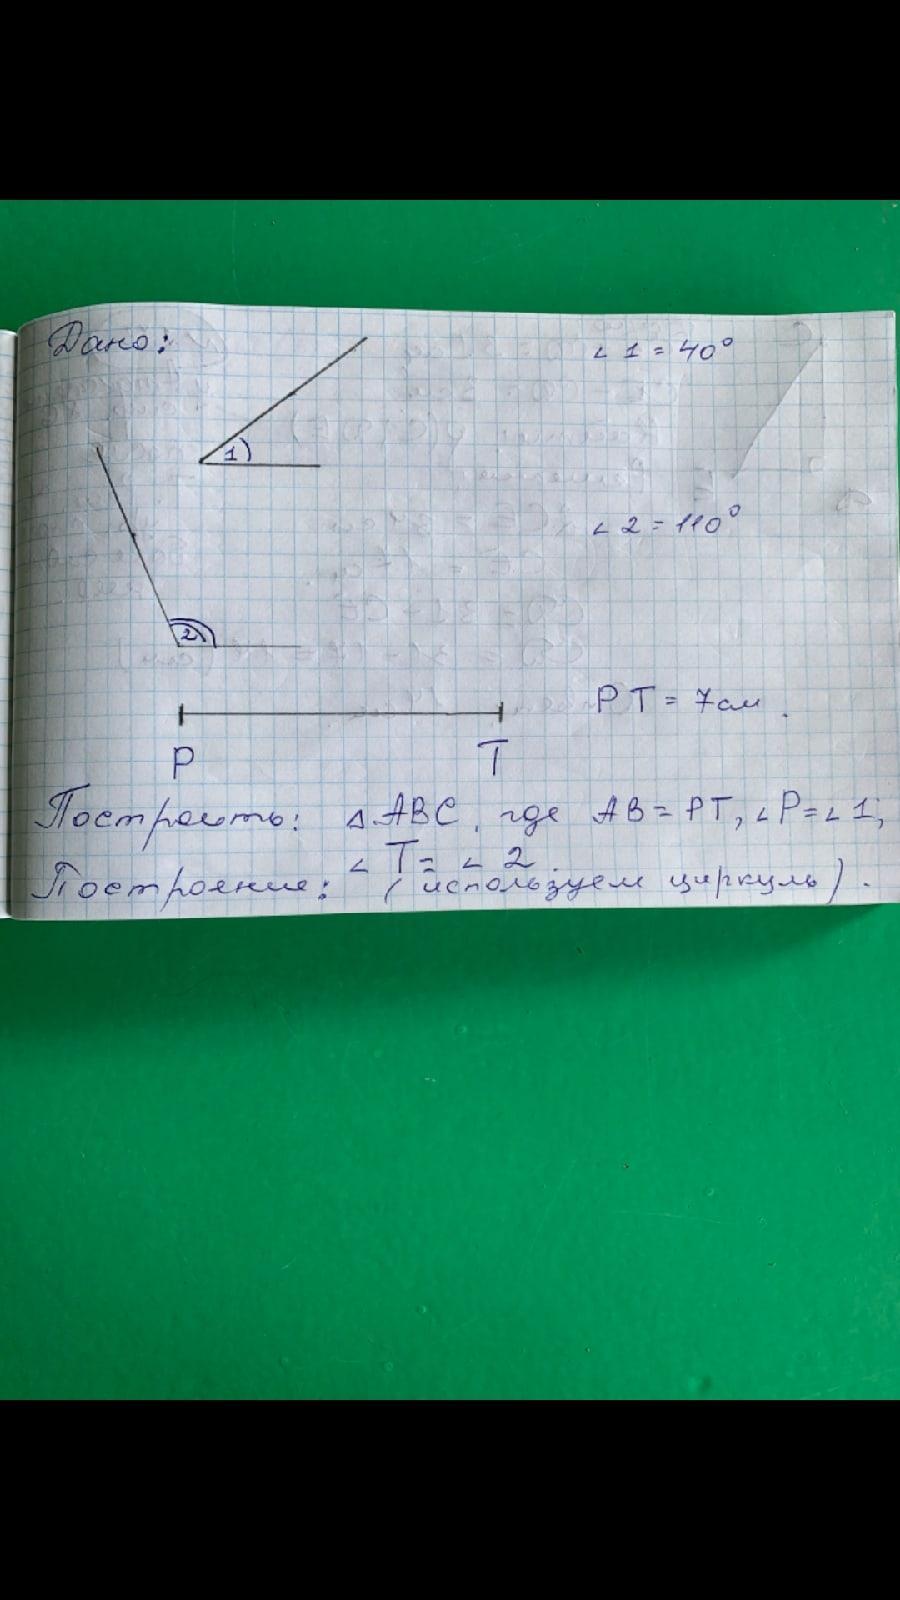 Дано:
∠ 1 = 40°
1
∠ 2 = 110°
2
PT = 7 см.
P T
Построить: △ABC, где AB = PT, ∠P = ∠1,
∠T = ∠2.
Построение: (используем циркуль).